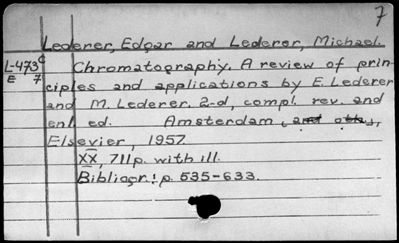 7
Lederer, Edgar and Lederer, Michael.
L-473c Chromatography. A review of prin-
E 7 ciples and applications by E. Lederer
and M. Lederer. 2-d, compl. rev. and
enl. ed. Amsterdam,
Elsevier, 1957.
XX, 711p. with ill.
Bibliogr.: p. 535-633.